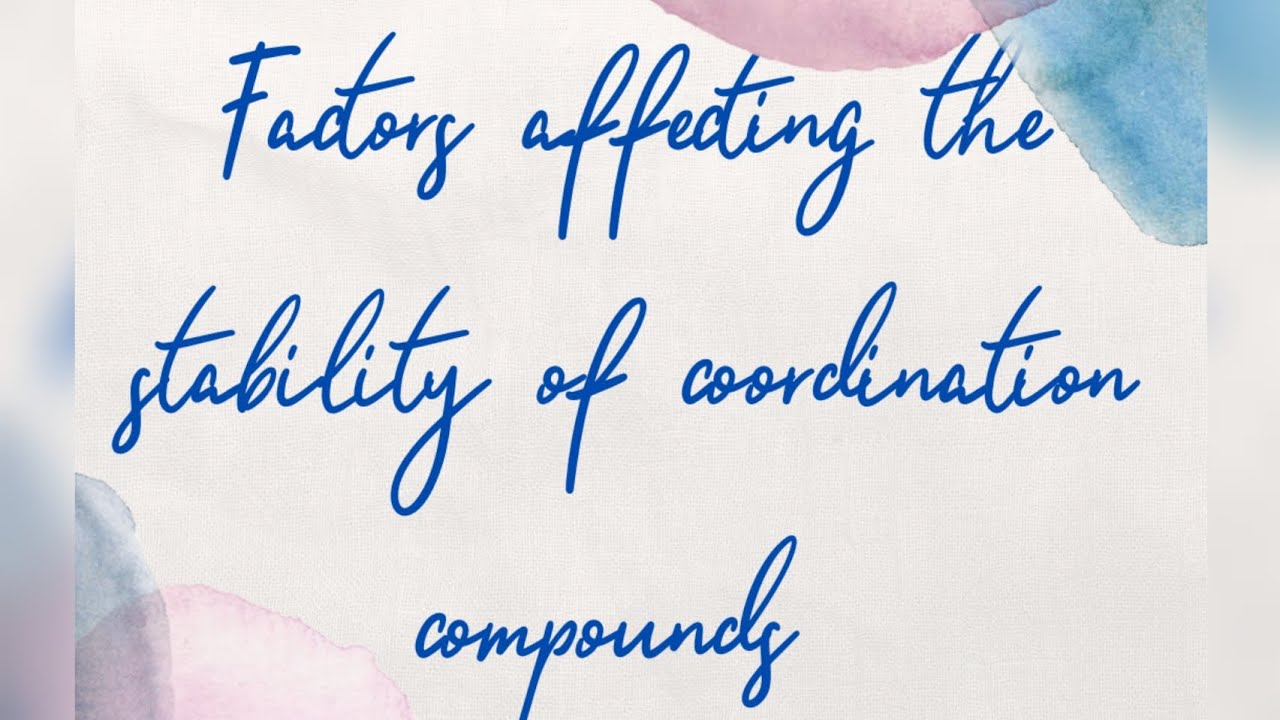 Factors affecting the
stability of coordination
compounds